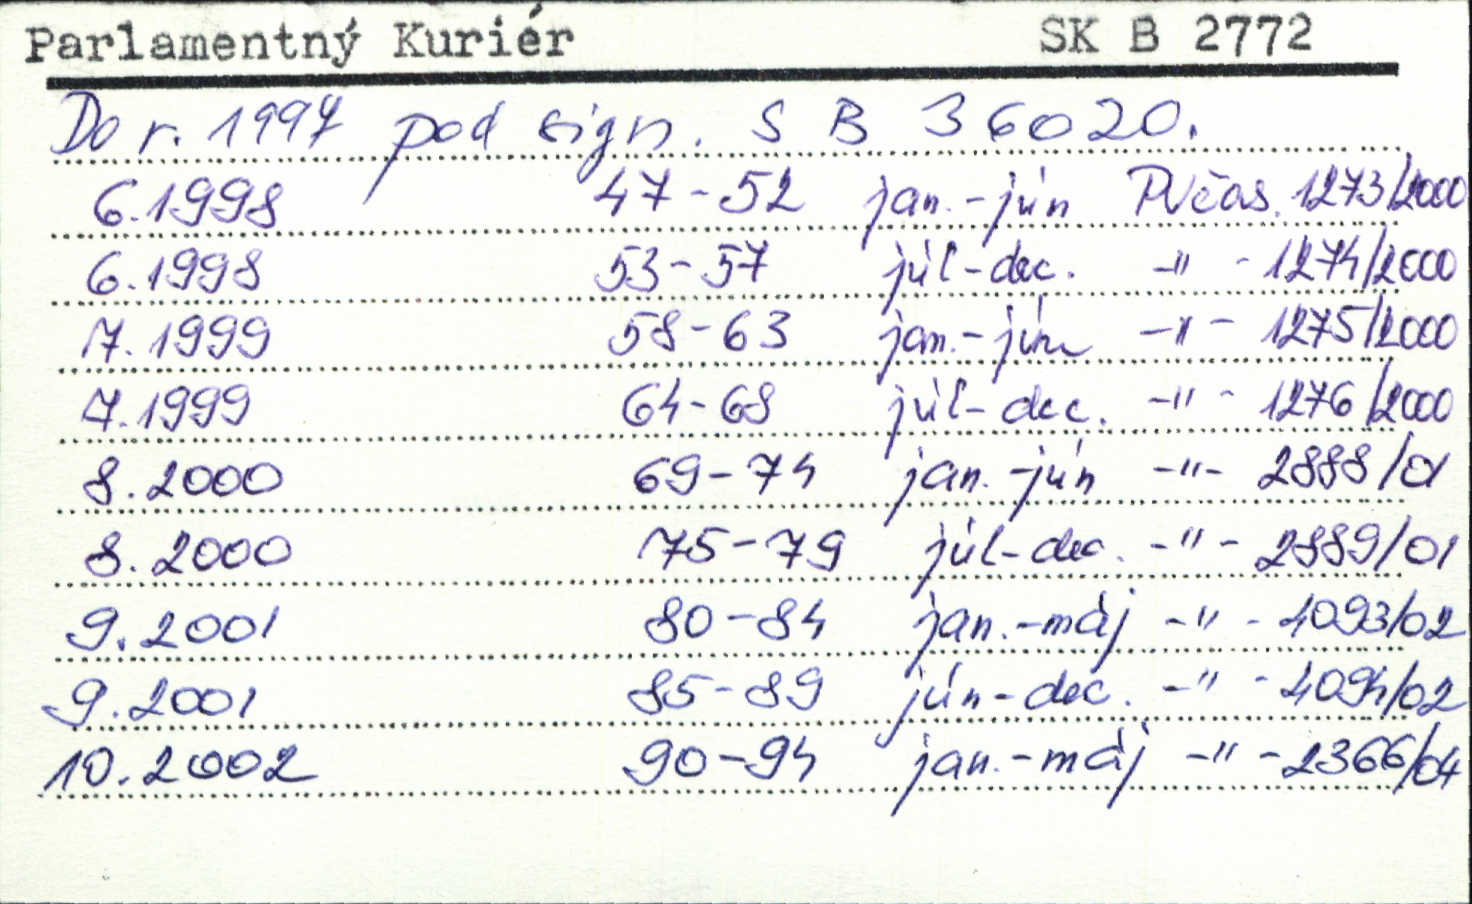 Parlamentný Kuriér SK B 2772
Do r. 1997 pod sign. S B 36020.
6.1998 47-52 jan.-jún PVčas. 1273/2000
6.1998 53-57 júl-dec. -"- 1274/2000
7.1999 58-63 jan.-jún -"- 1275/2000
7.1999 64-68 júl-dec. -"- 1276/2000
8.2000 69-74 jan.-jún -"- 2888/01
8.2000 75-79 júl-dec. -"- 2889/01
9.2001 80-84 jan.-máj -"- 4093/02
9.2001 85-89 jún-dec. -"- 4094/02
10.2002 90-94 jan.-máj -"- 2366/04